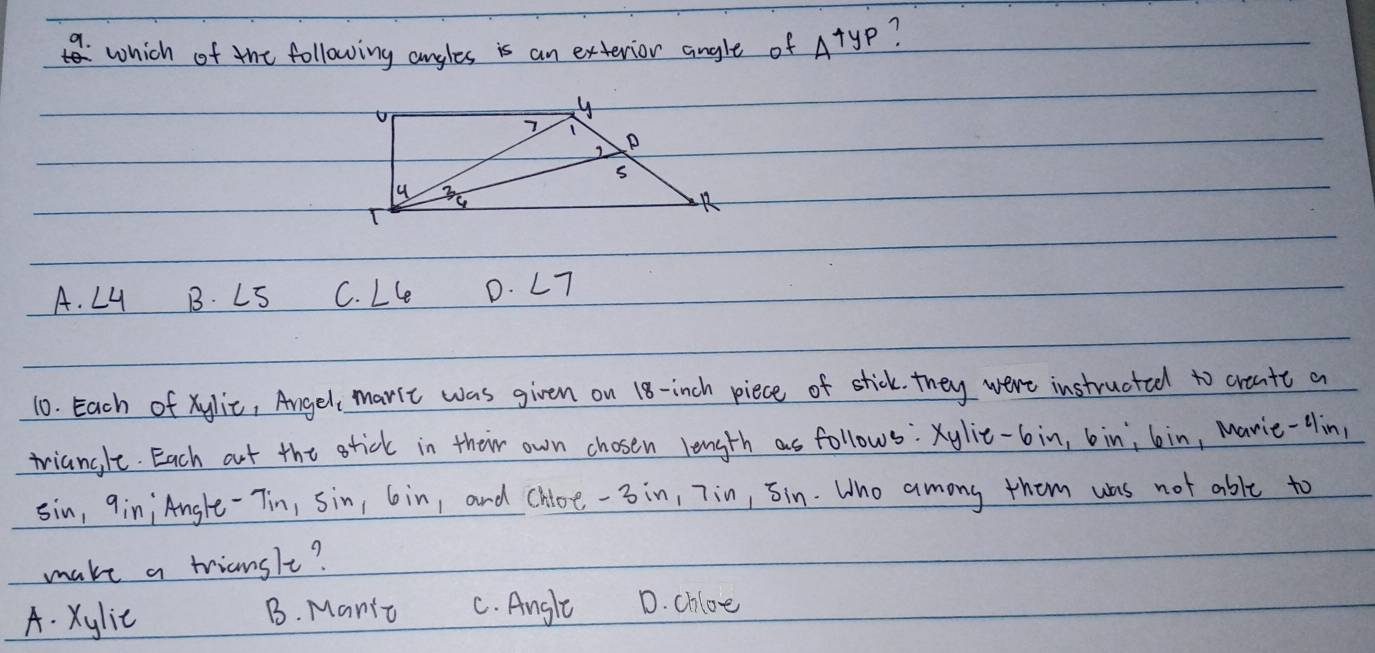 9. which of the following angles is an exterior angle of Δ TYP?
U Y
7 1
2 P
5
4 3
6
T R
A. ∠4 B. ∠5 C. ∠6 D. ∠7
10. Each of Xylie, Angel, Marie was given on 18-inch piece of stick. They were instructed to create a
triangle. Each cut the stick in their own chosen length as follows: Xylie - 6in, 6in, 6in, Marie - 4in,
5in, 9in; Angle - 7in, 5in, 6in, and Chloe - 3in, 7in, 5in. Who among them was not able to
make a triangle?
A. Xylie B. Marie C. Angle D. Chloe